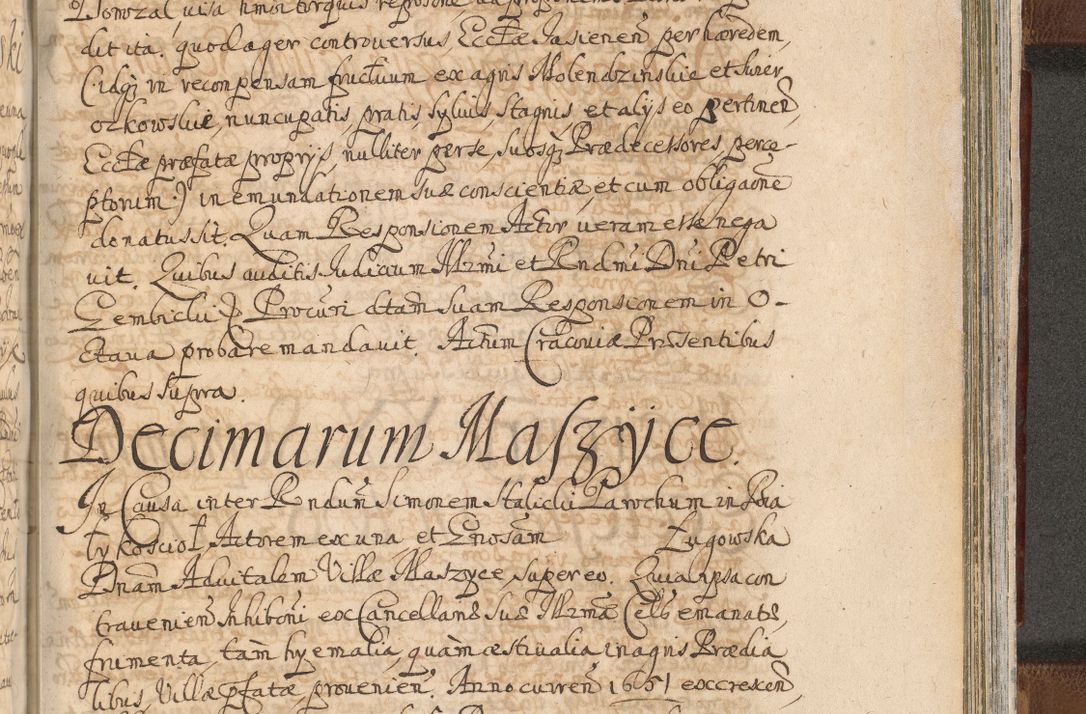 dit ita. quod ager controversus, Eccłæ Jasienen̄ per hæredem,
(: idq3 in recompensam fructuum ex agris Molendzinskie et Swier
czkowskie, nuncupatis, pratis, sylvis, stagnis, et alijs eo pertinen̄,
Eccłæ præfatæ proprijs, nulliter per se, suosq3 Prædecessores, perce-
ptorum :) in emundationem suæ conscientiæ, et cum obligaōne
donatus sit. Quam Responsionem Actor veram esse nega
vit. Quibus auditis Judicium Illrmi et Rndmi Dni Petri
Gembicki Procuri dtam suam Responsionem in O-
ctava probare mandavit. Actum Cracoviæ Præsentibus
quibus supra.
Decimarum Maszÿce.
In Causa inter Rndum Simonem Halicki Parochum in
ły kościoł, Actorem ex una et Gnosam Zugowska
Dnam Advitalem Villæ Maszyce super eo. Quia ipsa con
travenien̄ Inhiboni ex Cancellaria suæ Illrmæ Cels emanatæ,
frumenta, tàm hyemalia, quàm æstivalia in agris Prædia
libus, Villæ pfatæ provenien̄. Anno curren̄ 1651 excrescen̄,